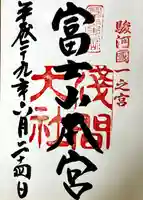 駿河國一之宮
富士山本宮
淺間大社
平成二九年六月二十四日